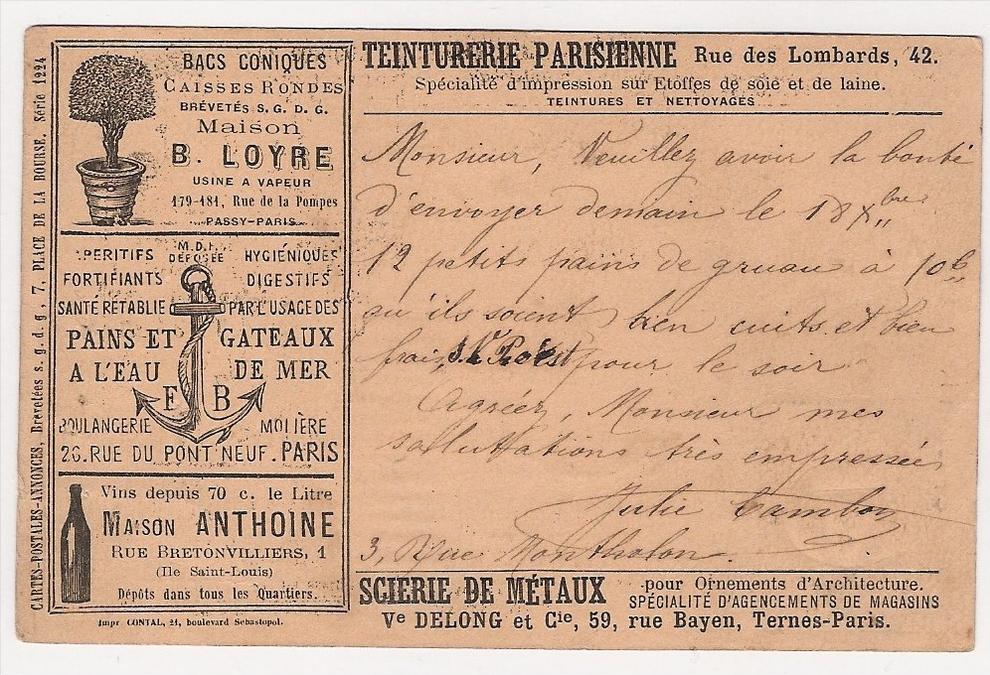 CARTES-POSTALES-ANNONCES, Brevetées s. g. d. g., 7, PLACE DE LA BOURSE. Série 1224
BACS CONIQUES
CAISSES RONDES
BRÉVETÉS S. G. D. G.
Maison
B. LOYRE
USINE A VAPEUR
179-181, Rue de la Pompes
PASSY-PARIS
M.D.F.
DÉPOSÉE
APERITIFS HYGIÉNIQUES
FORTIFIANTS DIGESTIFS
SANTÉ RÉTABLIE PAR L'USAGE DES
PAINS ET GATEAUX
A L'EAU DE MER
F B
BOULANGERIE MOLIÈRE
26. RUE DU PONT NEUF. PARIS
Vins depuis 70 c. le Litre
MAISON ANTHOINE
RUE BRETONVILLIERS, 1
(Ile Saint-Louis)
Dépôts dans tous les Quartiers.
Impr CONTAL, 21, boulevard Sebastopol.
TEINTURERIE PARISIENNE Rue des Lombards, 42.
Spécialité d'impression sur Etoffes de soie et de laine.
TEINTURES ET NETTOYAGES
Monsieur, Veuillez avoir la bonté
d'envoyer demain le 18 Xbre
12 petits pains de gruau à 10c
qu'ils soient bien cuits et bien
frais, pour le soir
Agréez, Monsieur mes
salluttations très empressées
Julie Cambon
3, Rue Montholon.
SCIERIE DE MÉTAUX pour Ornements d'Architecture.
SPÉCIALITÉ D'AGENCEMENTS DE MAGASINS
Ve DELONG et Cie, 59, rue Bayen, Ternes-Paris.